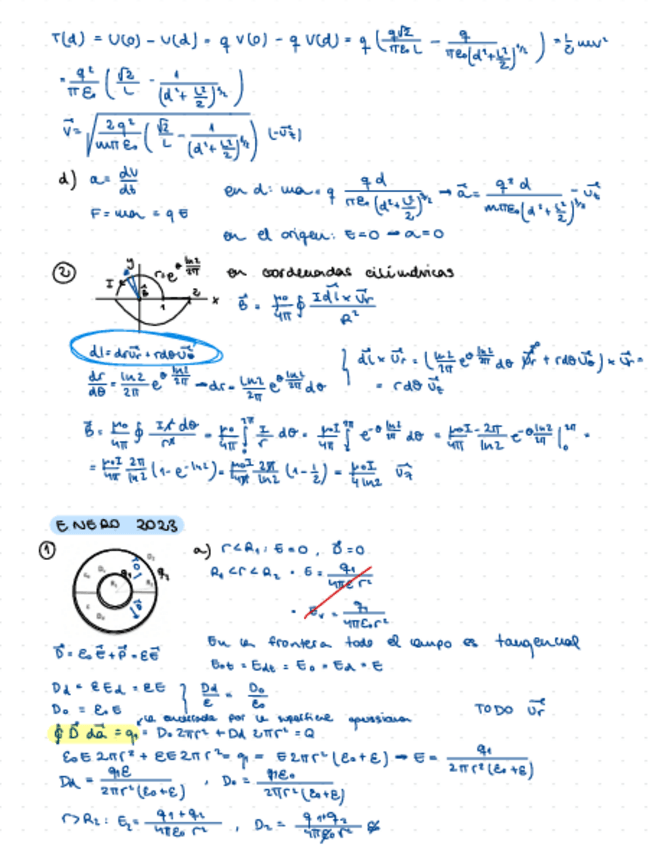 T(d) = U(0) - U(d) = q V(0) - q V(d) = q ( q√2 / πε₀L - q / πε₀(d²+L²/2)^1/2 ) = 1/2 mv²
= q²/πε₀ ( √2/L - 1/(d²+L²/2)^1/2 )
v⃗ = √( 2q²/mπε₀ ( √2/L - 1/(d²+L²/2)^1/2 ) ) (-u⃗z)
d) a = dv/dt
en d: ma = q qd/πε₀(d²+L²/2)^3/2 → a⃗ = q²d/mπε₀(d²+L²/2)^3/2 - u⃗z
F = ma = qE
en el origen: E=0 → a=0
② en coordenadas cilíndricas
y I B⃗ r=e^θ ln2/2π 1 2 x
B⃗ = μ₀/4π ∮ I dl⃗ × u⃗r / R²
dl = dr u⃗r + rdθ u⃗θ
dr/dθ = ln2/2π e^θ ln2/2π → dr = ln2/2π e^θ ln2/2π dθ
dl⃗ × u⃗r = ( ln2/2π e^θ ln2/2π dθ u⃗r + rdθ u⃗θ ) × u⃗r =
= rdθ u⃗z
B⃗ = μ₀/4π ∮ I r dθ / r² = μ₀/4π ∫₀^2π I/r dθ = μ₀I/4π ∫₀^2π e^-θ ln2/2π dθ = μ₀I/4π -2π/ln2 e^-θ ln2/2π |₀^2π =
= μ₀I/4π 2π/ln2 (1-e^-ln2) = μ₀I/4π 2π/ln2 (1-1/2) = μ₀I/4 ln2 u⃗z
ENERO 2023
① a) r<R₁: E=0, D⃗=0
R₁<r<R₂ · E = q₁/4πε r²
· Ev = q₁/4πε₀r²
D⃗ = ε₀E⃗+P⃗ = εE⃗
En la frontera todo el campo es tangencial
E₀t = Edt = E₀ = Ed = E
Dd = εEd = εE
D₀ = ε₀E
Dd/ε = D₀/ε₀
TODO u⃗r
la encerrada por la superficie gaussiana
∮ D⃗ da⃗ = q₁ = D₀ 2πr² + Dd 2πr² = Q
ε₀E 2πr² + εE 2πr² = q₁ = E 2πr² (ε₀+ε) → E = q₁/2πr²(ε₀+ε)
Dd = q₁ε/2πr²(ε₀+ε) , D₀ = q₁ε₀/2πr²(ε₀+ε)
r>R₂: E₂ = q₁+q₂/4πε₀r² , D₂ = q₁+q₂/4πε₀r² ε₀